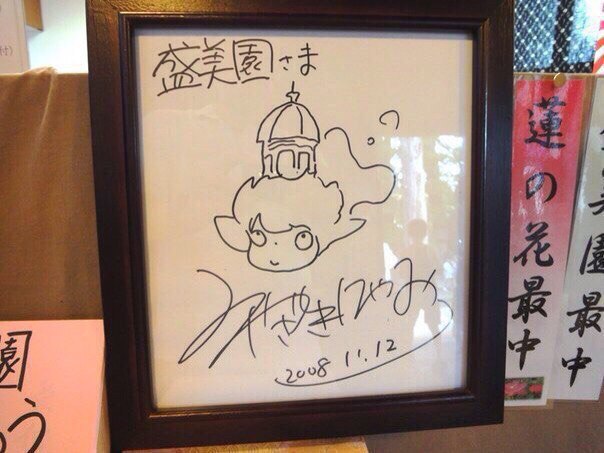 盛美園さま
みやざきはやお
2008 11.12
蓮の花最中
美園最中
園
う